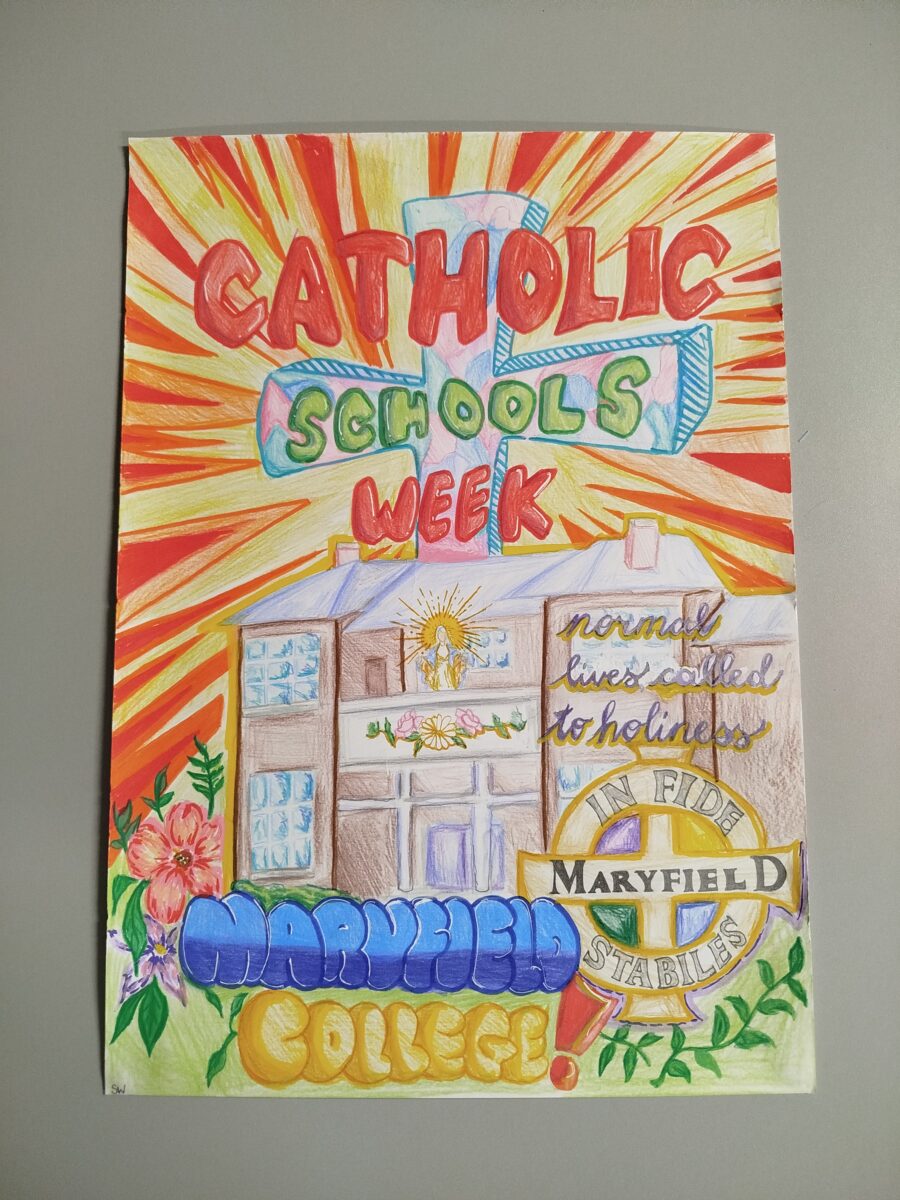 CATHOLIC
SCHOOLS
WEEK
normal
lives called
to holiness
IN FIDE
MARYFIELD
STABILES
MARYFIELD
COLLEGE!
SW